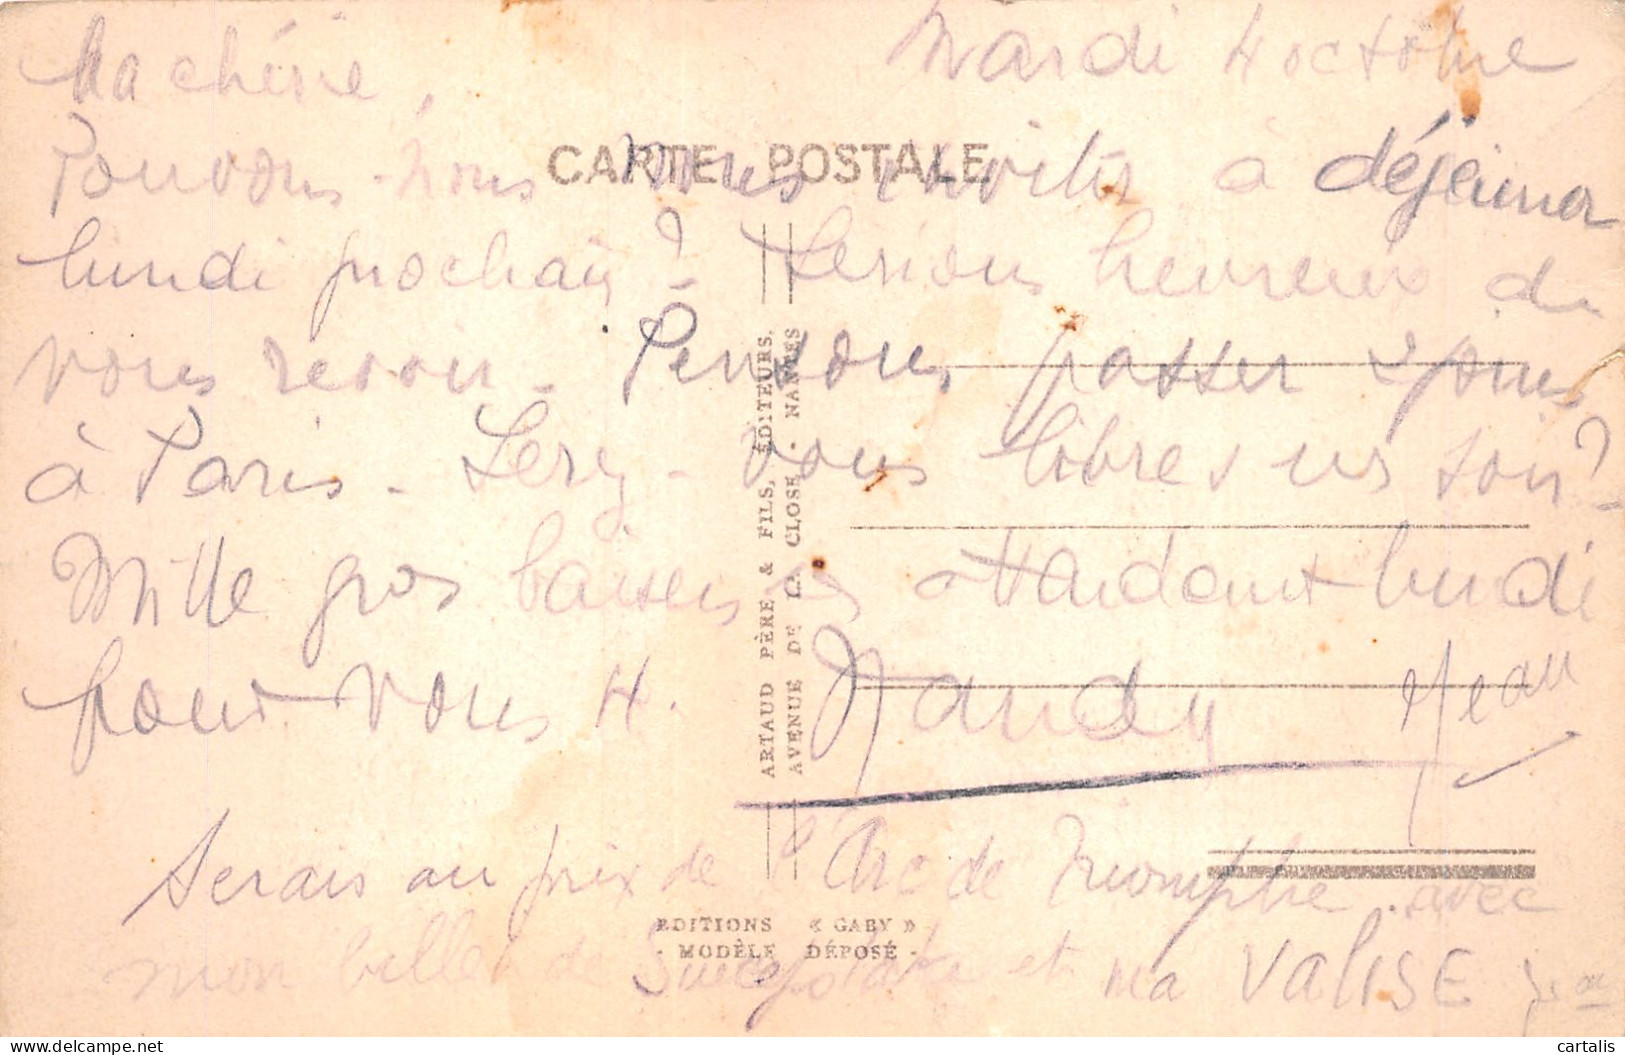 Mardi 4 octobre
Ma chérie,
CARTE POSTALE
Pouvons-nous vous inviter à déjeuner
lundi prochain? Serions heureux de
vous revoir. Pensons passer 2 jours
à Paris. Serez-vous libres un soir?
Mille gros baisers en attendant lundi
pour vous 4. Mandy Jean
Serais au prix de l'Arc de Triomphe avec
mon billet de Sweepstake et ma VALISE Jean
ARTAUD PÈRE & FILS, ÉDITEURS.
AVENUE DE LA CLOSE - NANTES
EDITIONS « GABY »
- MODÈLE DÉPOSÉ -
cartalis